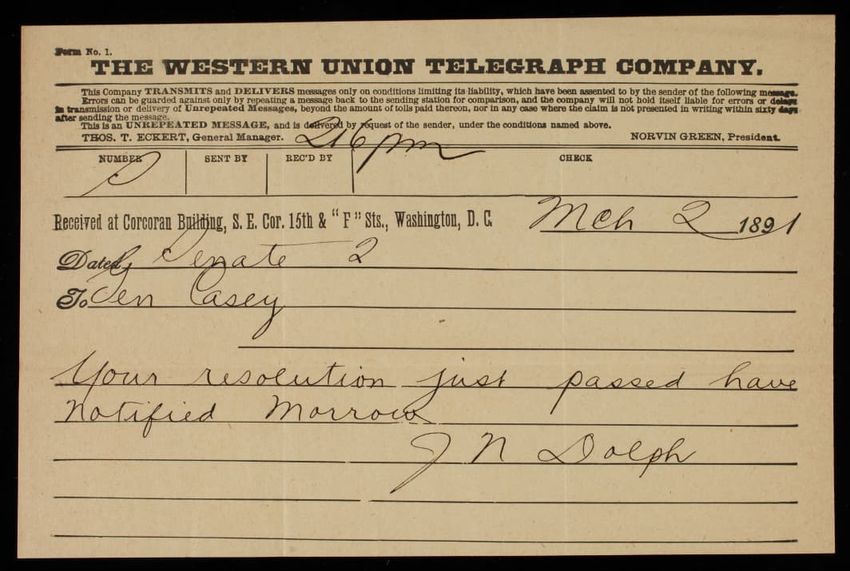 Form No. 1.
THE WESTERN UNION TELEGRAPH COMPANY.
This Company TRANSMITS and DELIVERS messages only on conditions limiting its liability, which have been assented to by the sender of the following message.
Errors can be guarded against only by repeating a message back to the sending station for comparison, and the company will not hold itself liable for errors or delays
in transmission or delivery of Unrepeated Messages, beyond the amount of tolls paid thereon, nor in any case where the claim is not presented in writing within sixty days
after sending the message.
This is an UNREPEATED MESSAGE, and is delivered by request of the sender, under the conditions named above.
THOS. T. ECKERT, General Manager. NORVIN GREEN, President.
216 pm
NUMBER SENT BY REC'D BY CHECK
Received at Corcoran Building, S. E. Cor. 15th & "F" Sts., Washington, D. C. Mch 2 1891
Dated, Senate 2
To Gen Casey
Your resolution just passed have
notified Morrow
J N Dolph